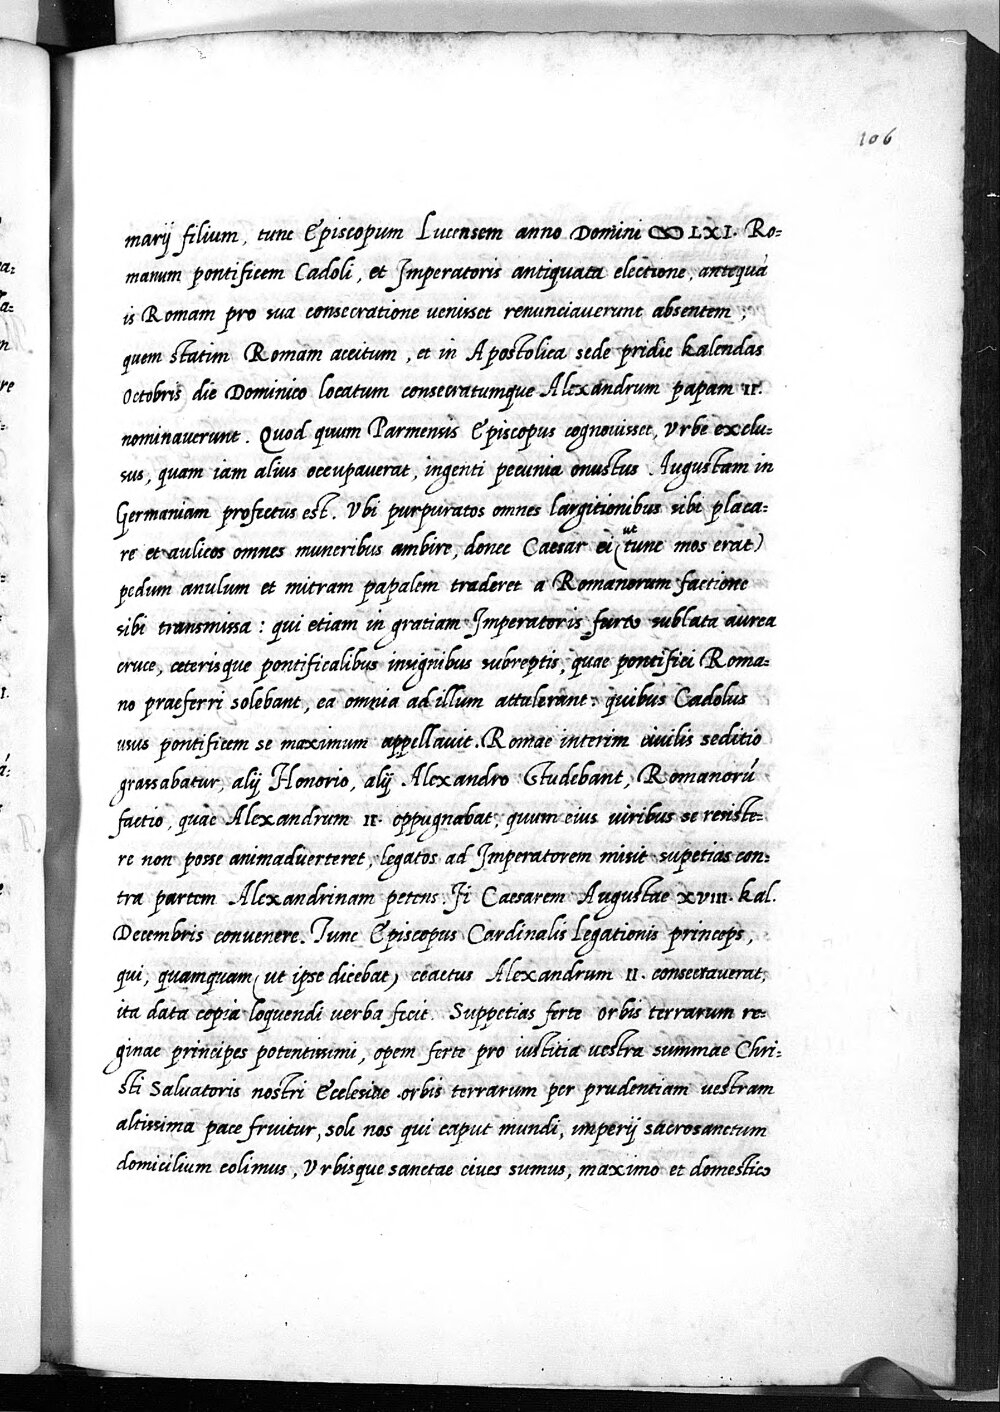 106
marij filium, tunc Episcopum Lucensem anno Domini ↀ LXI. Ro=
manum pontificem Cadoli, et Imperatoris antiquata electione, antequã
is Romam pro sua consecratione uenisset renunciauerunt absentem,
quem statim Romam accitum, et in Apostolica sede pridie kalendas
Octobris die Dominico locatum consecratumque Alexandrum papam II.
nominauerunt. Quod quum Parmensis Episcopus cognouisset, Vrbe exclu=
sus, quam iam alius occupauerat, ingenti pecunia onustus Augustam in
Germaniam profectus est. Vbi purpuratos omnes largitionibus sibi placa=
re et aulicos omnes muneribus ambire, donec Caesar ei (ut tunc mos erat)
pedum anulum et mitram papalem traderet a Romanorum factione
sibi transmissa: qui etiam in gratiam Imperatoris furto sublata aurea
cruce, ceterisque pontificalibus insignibus subreptis, quae pontifici Roma=
no praeferri solebant, ea omnia ad illum attulerant: quibus Cadolus
usus pontificem se maximum appellauit. Romae interim ciuilis seditio
grassabatur, alij Honorio, alij Alexandro Studebant, Romanorũ
factio, quae Alexandrum II. oppugnabat, quum eius uiribus se resiste=
re non posse animaduerteret, legatos ad Imperatorem misit supetias con=
tra partem Alexandrinam petens. Ii Caesarem Augustae XVIII. kal.
Decembris conuenere. Tunc Episcopus Cardinalis Legationis princeps,
qui, quamquam (ut ipse dicebat) coactus Alexandrum II. consecrauerat,
ita data copia loquendi uerba fecit. Suppetias ferte orbis terrarum re=
ginae principes potentissimi, opem ferte pro iustitia uestra summae Chri=
sti Saluatoris nostri Ecclesiae orbis terrarum per prudentiam uestram
altissima pace fruitur, soli nos qui caput mundi, imperij sacrosanctum
domicilium colimus, Vrbisque sanctae ciues sumus, maximo et domestico